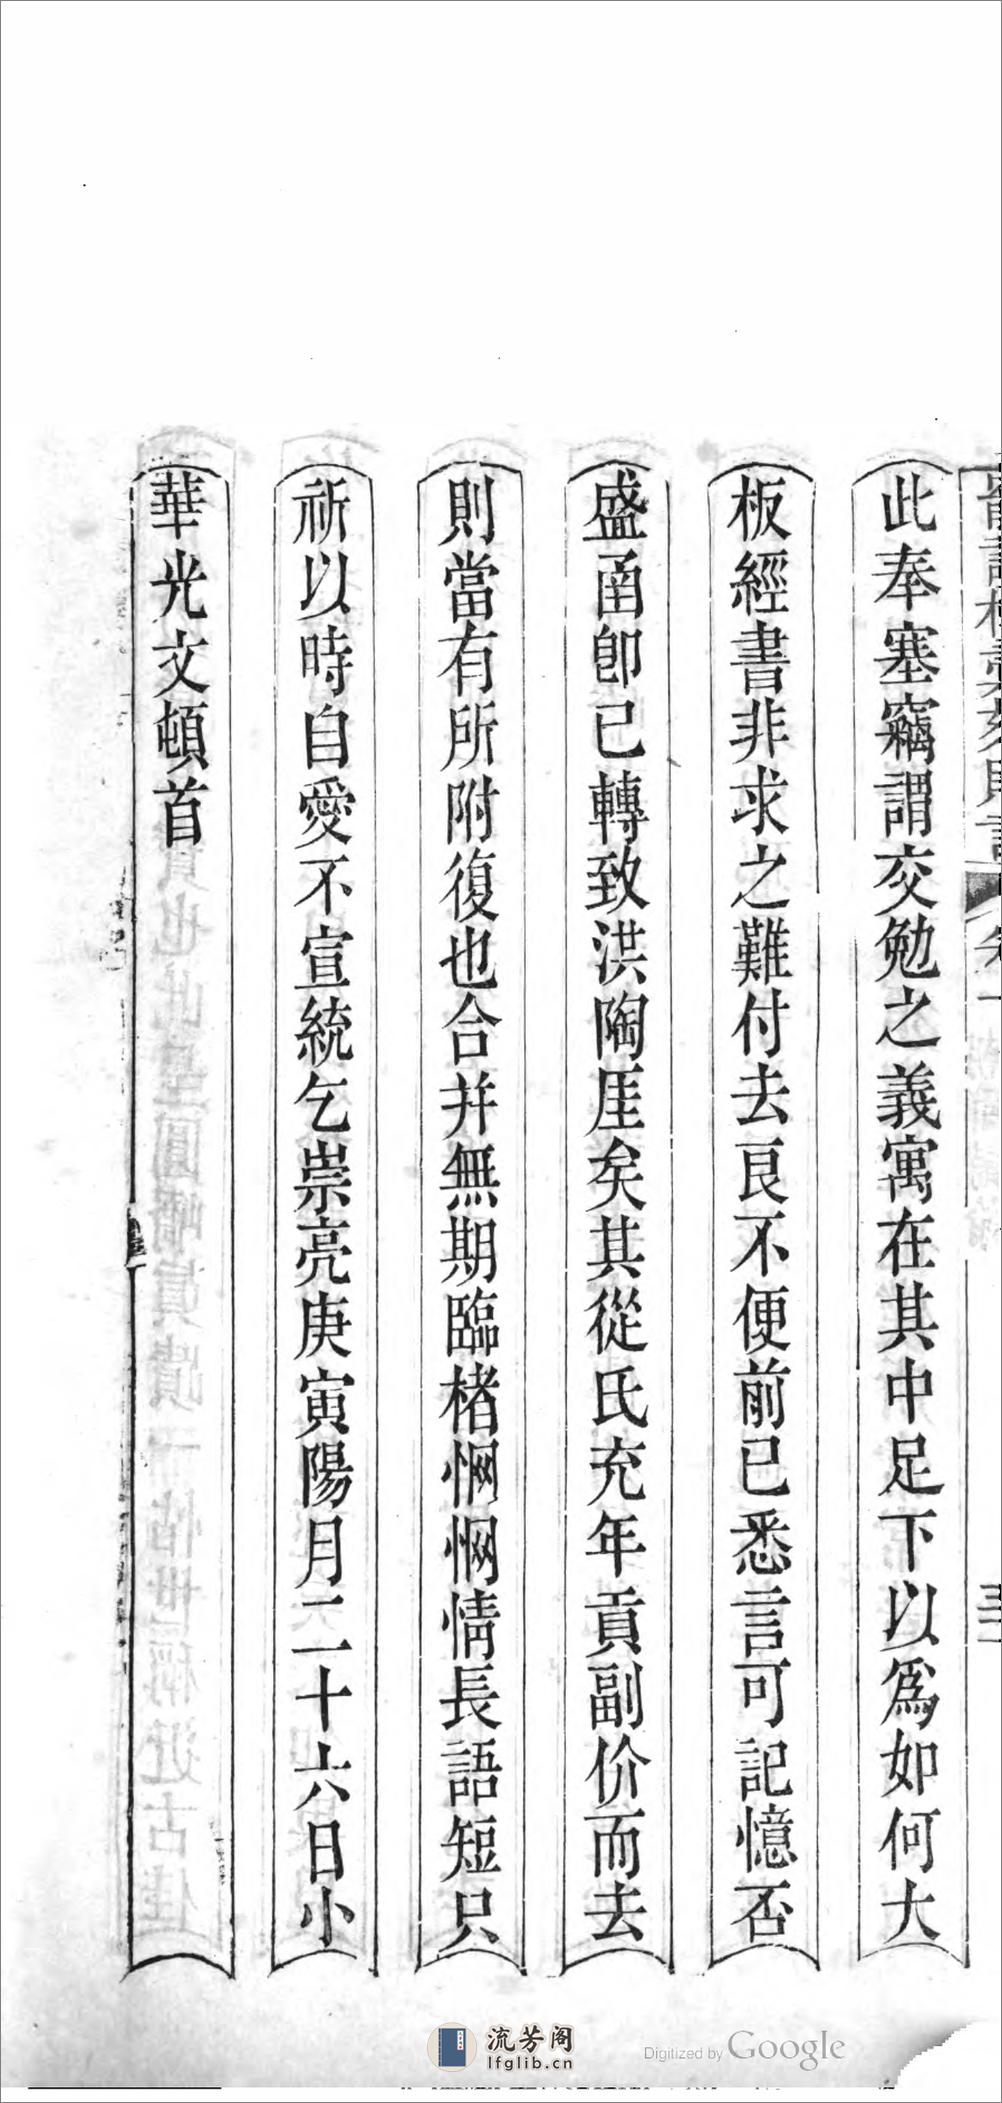 此奉塞竊謂交勉之義寓在其中足下以爲如何大
板經書非求之難付去良不便前已悉言可記憶否
盛函卽已轉致洪陶厓矣其從氏充年貢副价而去
則當有所附復也合幷無期臨楮惘惘情長語短只
祈以時自愛不宣統乞崇亮庚寅陽月二十六日小
華光文頓首
流芳阁
lfglib.cn
Digitized by Google